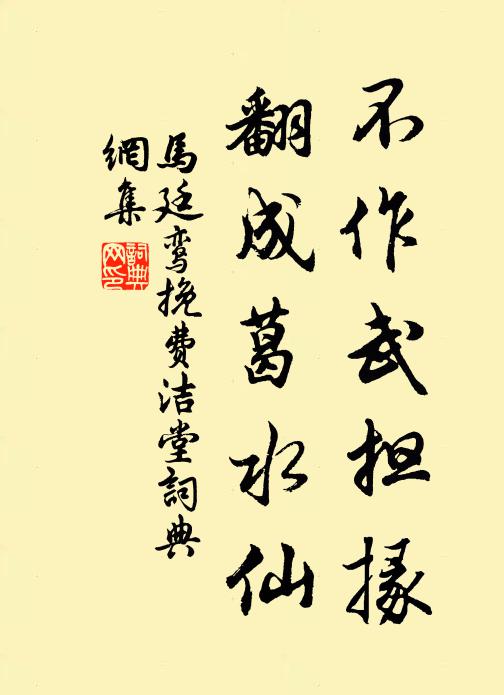 不作武担掾
翻成葛水仙
馬廷鸾挽费洁堂詞典
網集
詞典网印